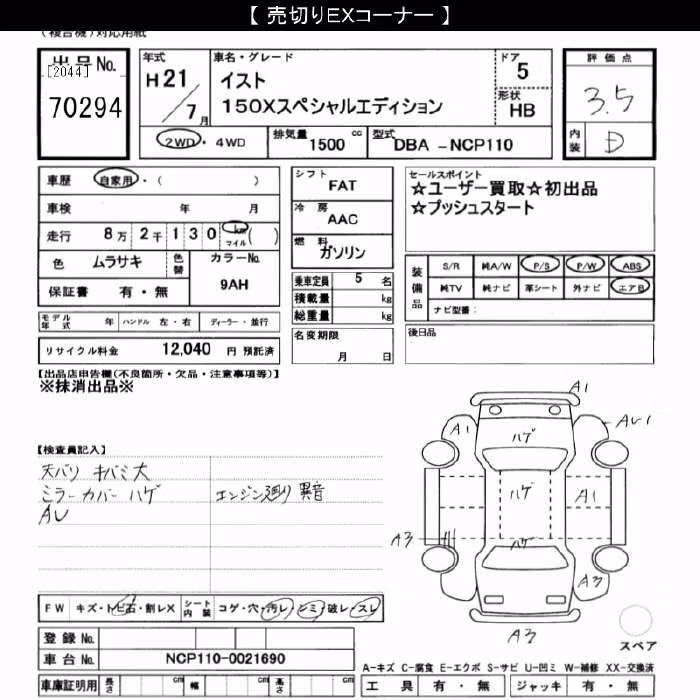 【 売切りEXコーナー 】
(複合機)対応用紙
出品No.
[2044]
70294
年式
H21/7月
車名・グレード
イスト
150Xスペシャルエディション
ドア
5
形状
HB
評価点
3.5
内装
D
2WD・4WD
排気量 1500 cc
型式 DBA-NCP110
車歴 自家用・( )
車検 年 月
走行 8万2千130 km マイル ( )
色 ムラサキ 色替 カラーNo. 9AH
保証書 有・無
モデル年式 年 ハンドル 左・右 ディーラー・並行
リサイクル料金 12,040 円 預託済
シフト FAT
冷房 AAC
燃料 ガソリン
乗車定員 5 名
積載量 kg
総重量 kg
名変期限
月 日
セールスポイント
☆ユーザー買取☆初出品
☆プッシュスタート
装備品
S/R 純A/W P/S P/W ABS
純TV 純ナビ 革シート 外ナビ エアB
ナビ型番:
後日品
【出品店申告欄(不良箇所・欠品・注意事項等)】
※抹消出品※
【検査員記入】
天バリ キバミ大
ミラーカバー ハゲ
AU
エンジン廻り 異音
A1
A1
AU1
ハゲ
ハゲ
A1
A3
ハゲ
A3
A3
スペア
FW キズ・トビ石・割レX シート内装 コゲ・穴・汚レ・シミ・破レ・スレ
登録No.
車台No. NCP110-0021690
車庫証明用 長さ cm 幅 cm 高さ cm
A-キズ C-腐食 E-エクボ S-サビ U-凹ミ W-補修 XX-交換済
工具 有・無 ジャッキ 有・無